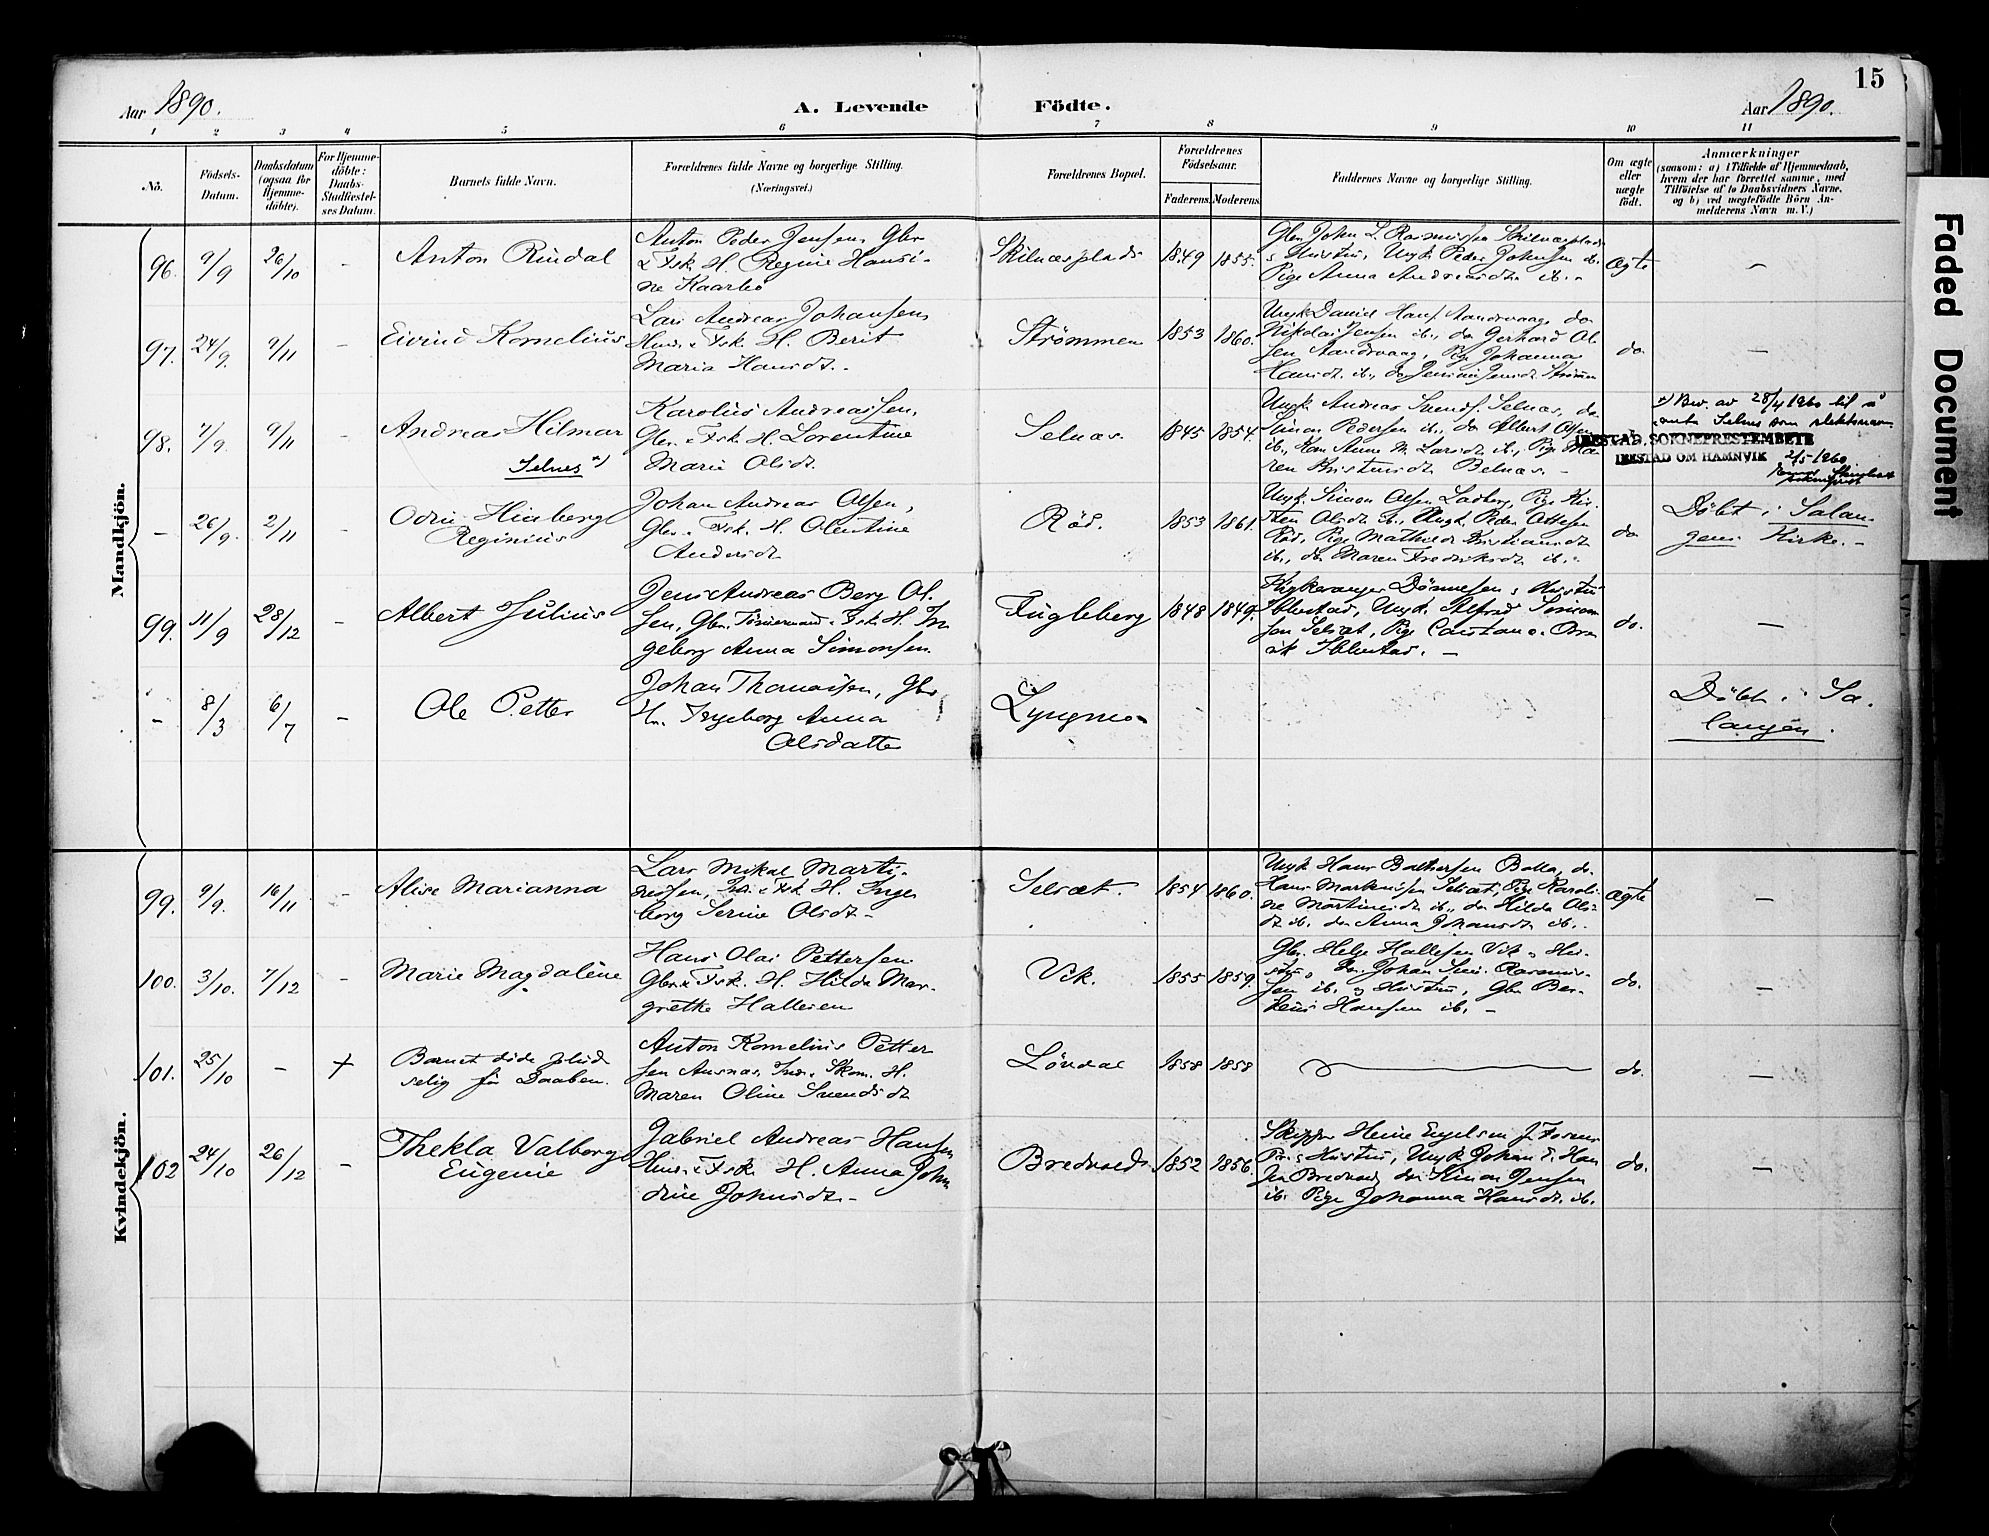 15
Aar 1890.
A. Levende Födte.
Aar 1890.
1 2 3 4 5 6 7 8 9 10 11
No.
Födsels-
Datum.
Daabsdatum
(ogsaa for
Hjemme-
döbte).
For Hjemme-
döbte:
Daabs-
Stadfæstel-
ses Datum.
Barnets fulde Navn.
Forældrenes fulde Navne og borgerlige Stilling.
(Næringsvei.)
Forældrenes Bopæl.
Forældrenes
Födselsaar.
Faderens. Moderens.
Faddernes Navne og borgerlige Stilling.
Om ægte
eller
uægte
födt.
Anmærkninger
(saasom: a) i Tilfælde af Hjemmedaab,
hvem der har forrettet samme, med
Tilföielse af to Daabsvidners Navne,
og b) ved uægtefödte Börn An-
melderens Navn m. V.)
Mandkjön.
96. 9/9 26/10 -
Anton Rindal
Anton Peder Jensen, Gbr
& Fsk. H. Regine Hansi-
ne Kaarbö
Skilnæsplads 1849 1855.
Gbr. John L. Rasmussen Skilnæsplads
s Hustru, Ungk. Peder Johnsen ib.
Pige Anna Andreasdtr ib. -
Ægte
97. 24/9. 9/11 -
Eivind Kornelius
Lars Andreas Johansen,
Hmd. & Fsk. H. Berit
Maria Hansdt.
Strømmen 1853 1860.
Ungk. Daniel Hans. Aandsvaag, do
Nikolai Jensen ib., do Gerhard Ol-
sen Aandsvaag, Pige Johanna
Hansdt. ib., do Jensine Jensdt Strömmen
do. -
98. 7/9. 9/11 -
Andreas Hilmar
Selnes *)
Karolius Andreassen,
Gbr. & Fsk. H. Lorentine
Marie Olsdt.
Selnæs. 1845 1854.
Ungk. Andreas Svends. Selnæs, do
Simon Pedersen ib., do Albert Olsen
ib., Kone Anne M. Larsdt. ib., Pige Ma-
ren Kristinsdt Selnæs. -
*) Bev. av 28/4 1960 til å
anta Selnes som slektsnavn
IBESTAD SOKNEPRESTEMBETE
IBESTAD OM HAMNVIK 2/5 1960
- 26/9. 2/11 -
Odin Hinberg
Reginius
Johan Andreas Olsen,
Gbr. & Fsk. H. Olentine
Andersdt
Röd. 1853 1861.
Ungk. Simon Olsen Ladberg, Pige Kir-
sten Olsdt. ib., Ungk. Peder Ottesen
Röd, Pige Mathilde Kristiansdt
ib., do Maren Fredriksdt ib. -
do
Döbt i Salan-
gens Kirke. -
99. 11/9 28/12 -
Albert Julius
Jens Andreas Berg Ol-
sen, Gbr. Tömmermand & Fsk. H. In-
geborg Anna Simonsen
Fugleberg 1848 1849.
Kirkesanger Dönnesen s Hustru
Ibbestad, Ungk. Alfred Simon-
sen Selsæt, Pige
Ibbestad. -
do. -
- 8/3 6/7 -
Ole Petter
Johan Thomassen, Gbr
H. Ingeborg Anna
Olsdatter
Lyngmo
Döbt i Sa-
langen.
Kvindekjön.
99. 9/9. 16/11 -
Alise Marianna
Lars Mikal Marti-
nussen, Ind. & Fsk. H. Inge-
borg Serine Olsdt. -
Selsæt. 1854 1860.
Ungk. Hans Baltsersen Bolla, do.
Hans Markussen Selsæt, Pige Karoli-
ne Martinusdt ib., do Hilda Ols-
dt ib. do Anna Johansdt ib. -
Ægte -
100. 3/10. 7/12 -
Marie Magdalene
Hans Olai Pettersen
Gbr. & Fsk. H. Hilda Mar-
grethe Hallesen
Vik. 1855 1859.
Gbr. Helge Hallesen Vik & Hu-
stru, Gbr. Johan Rasmus-
sen ib. & Hustru, Gbr. Ber-
teus Hansen ib. -
do. -
101. 25/10 - +
Barnet döde plud-
selig för Daaben.
Anton Kornelius Petter-
sen Aasnæs, Ind. & Skom. H.
Maren Oline Svendsdt
Lövdal 1858 1858
do. -
102 24/10 26/12 -
Thekla Valborg
Eugenie
Gabriel Andreas Hansen
Hmd. & Fsk. H. Anna John-
dine Johnsdt. -
Bredvold 1852 1856.
Skipper Heine Engelsen
s Hustru, Ungk. Johan E. Han-
sen Bredvold, do Simon Jensen
ib. Pige Johanna Hansdt. ib.
do. -
Faded Document